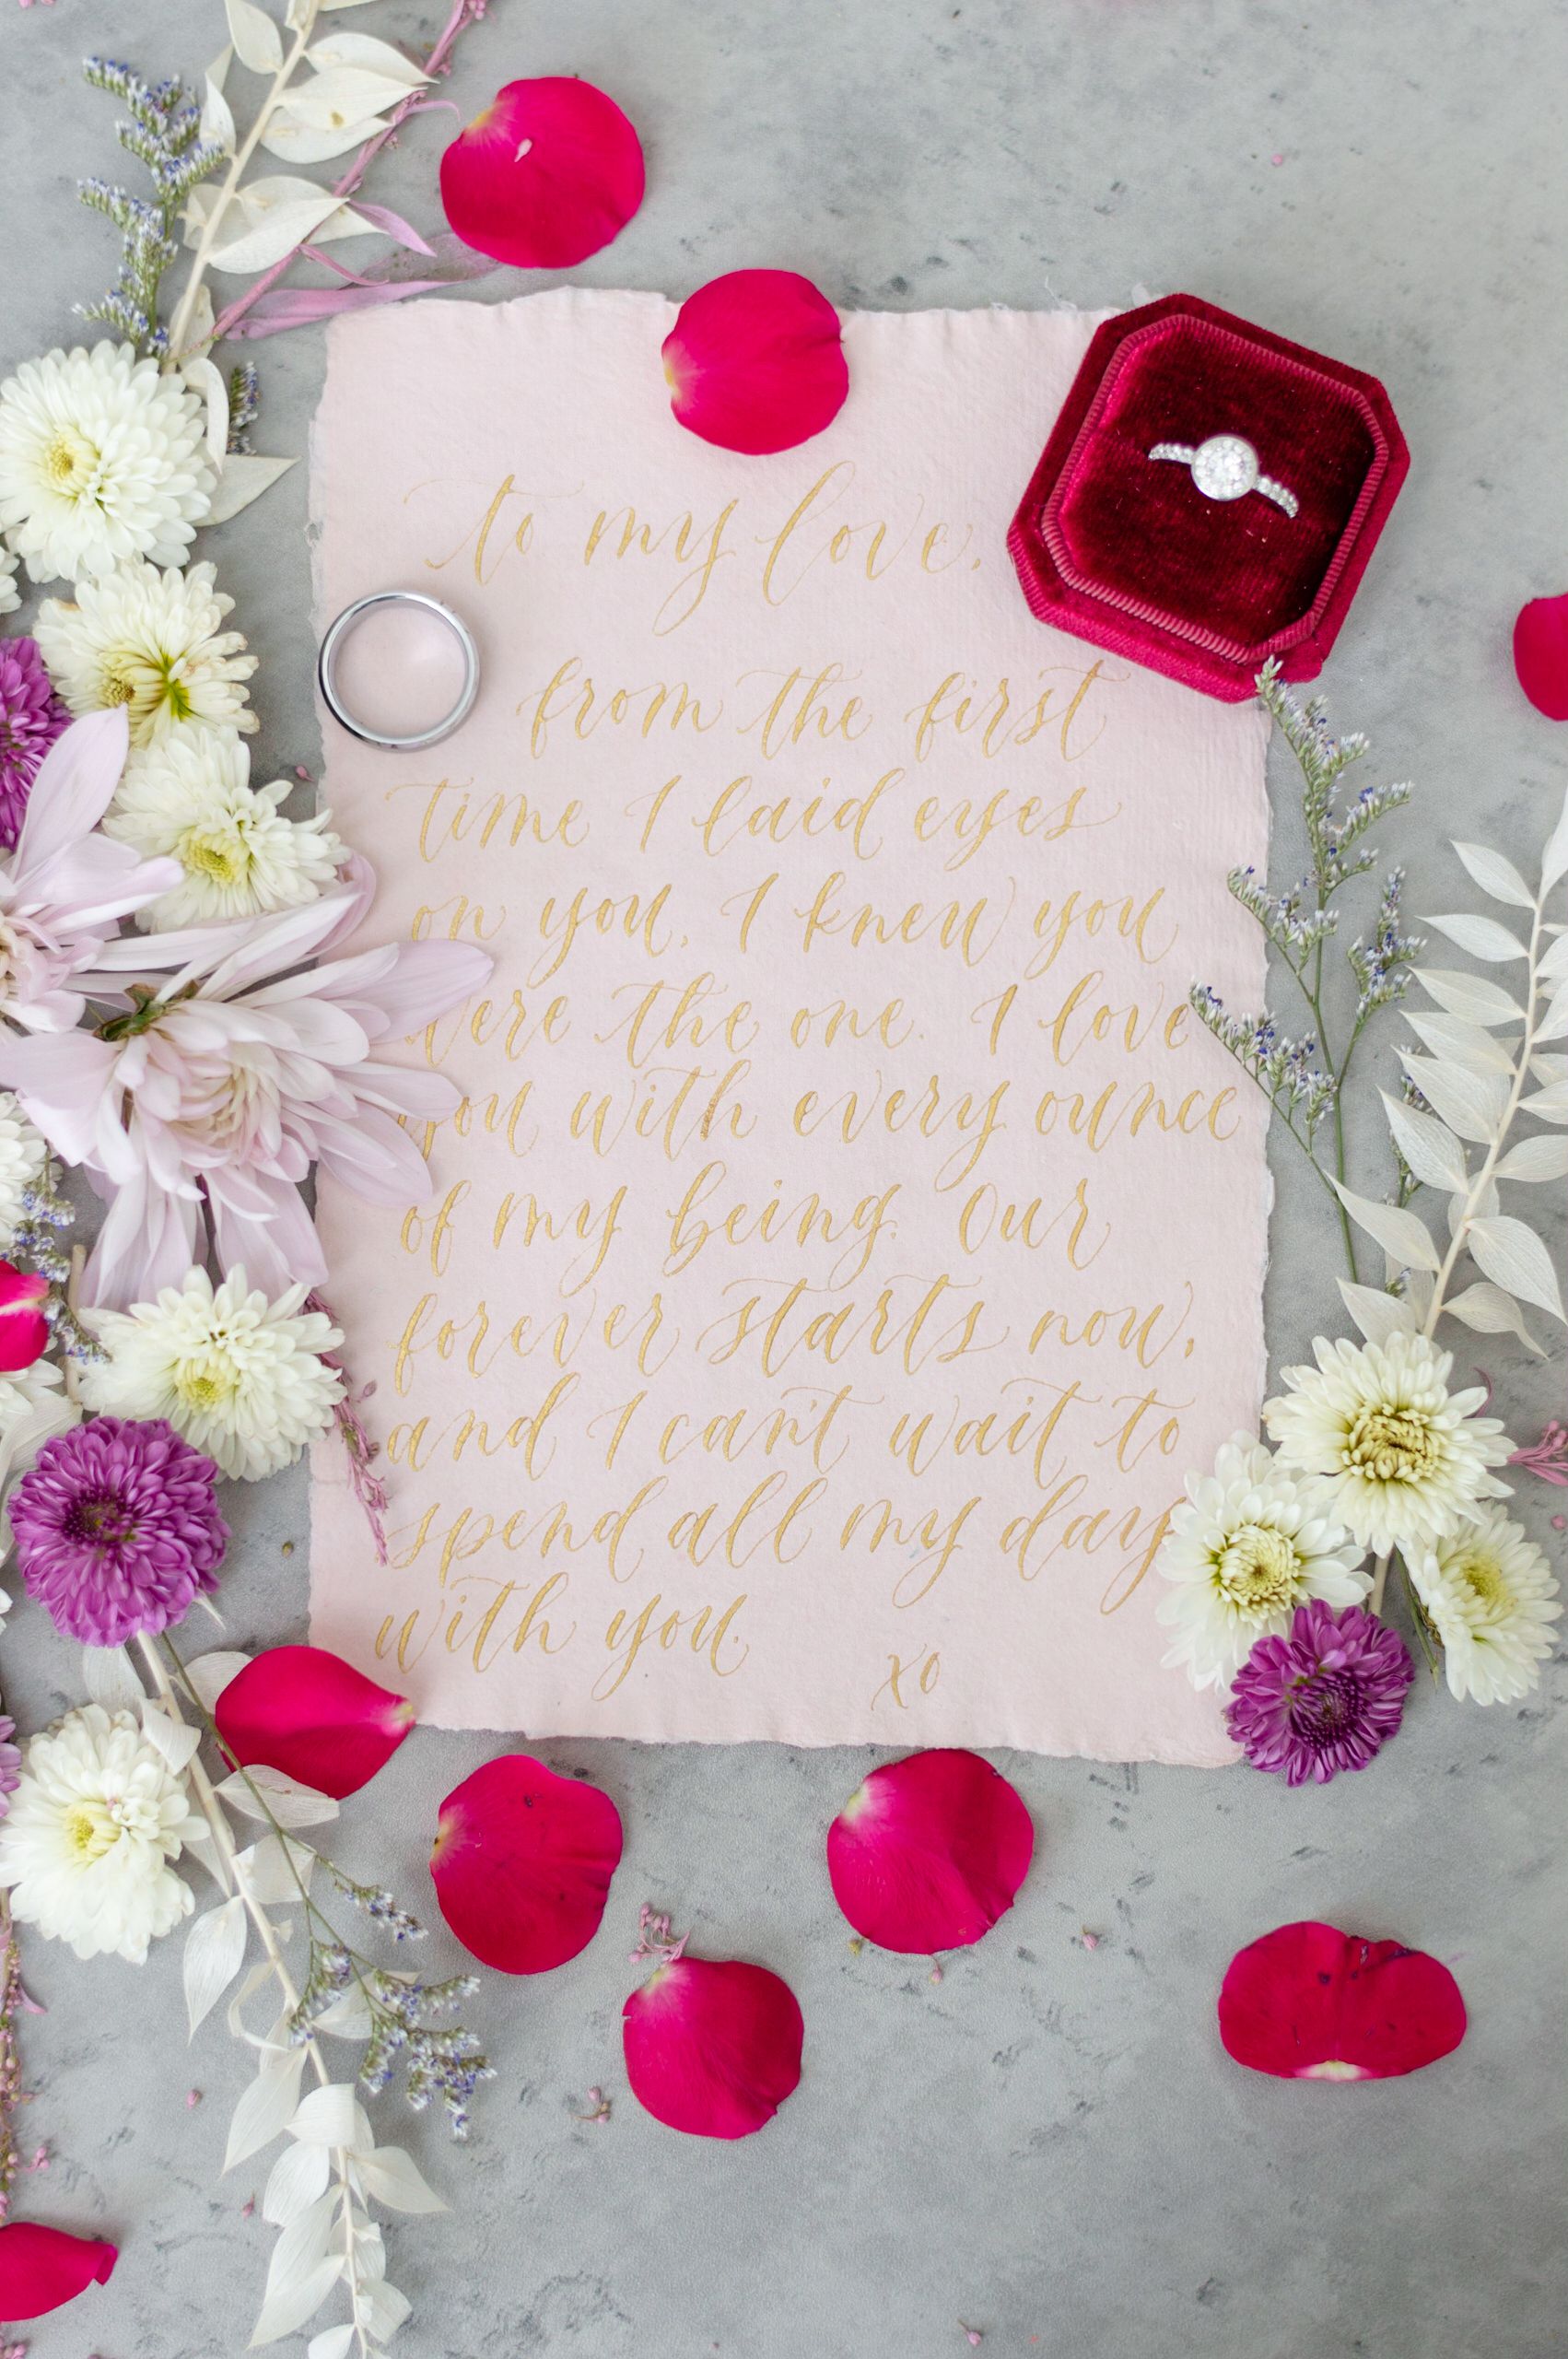 to my love,
from the first
time I laid eyes
on you, I knew you
were the one. I love
you with every ounce
of my being. Our
forever starts now,
and I can't wait to
spend all my day
with you.
xo